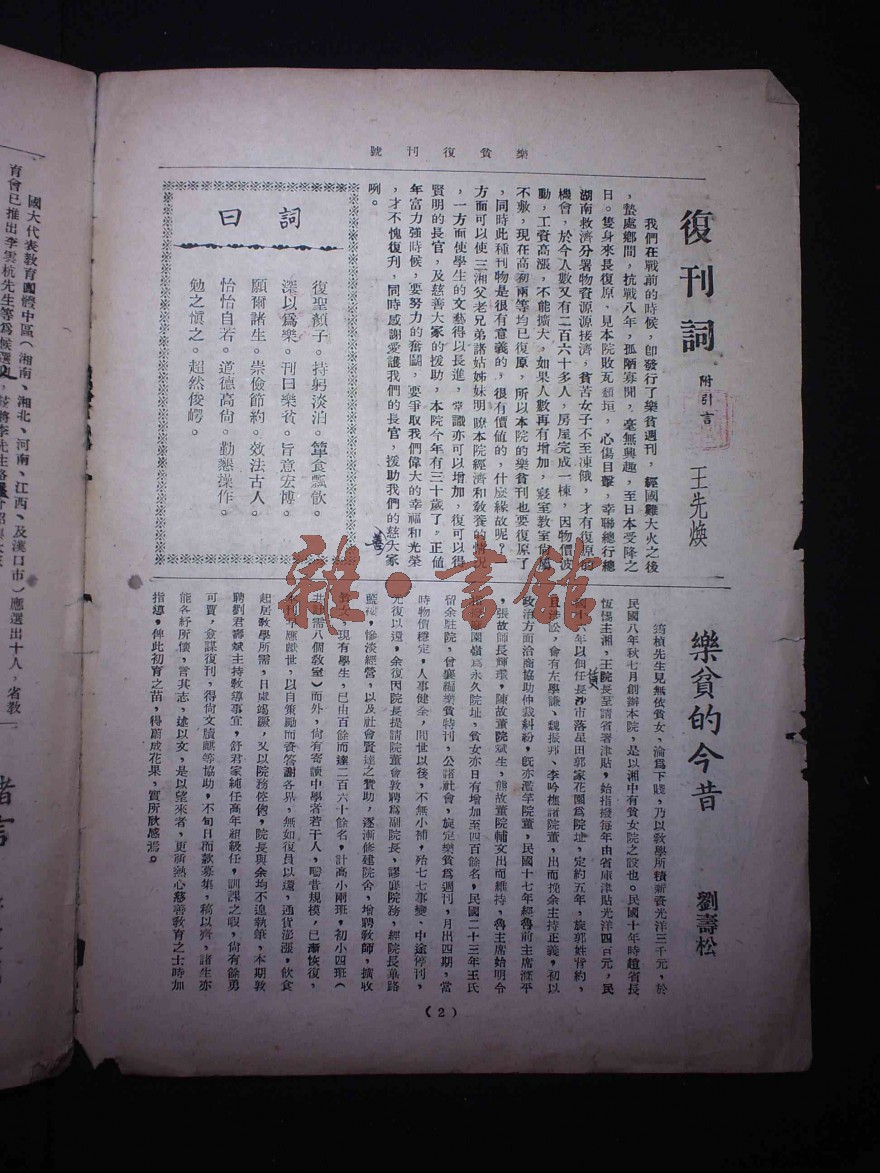 樂貧復刊號
復刊詞 附引言 王先煥
我們在戰前的時候，卽發行了樂貧週刊，經國難大火之後
，蟄處鄉間，抗戰八年，孤陋寡聞，毫無興趣，至日本受降之
日。隻身來長復原，見本院敗瓦頹垣，心傷目擊，幸聯總行總
湖南救濟分署物資源源接濟，貧苦女子不至凍餓，才有復原的
機會，於今人數又有二百六十多人，房屋完成一棟，因物價波
動，工資高漲，不能擴大，如果人數再有增加，寢室教室尙屬
不敷，現在高初兩等均已復原，所以本院的樂貧刊也要復原了
，同時此種刊物是很有意義的，很有價値的，什麽緣故呢？一
方面可以使三湘父老兄弟諸姑姊妹明瞭本院經濟和教養的情況
，一方面使學生的文藝得以長進，常識亦可以增加，復可以得
賢明的長官，及慈善大家的援助，本院今年有三十歲了，正値
年富力強時候，要努力的奮鬭，要爭取我們偉大的幸福和光榮
，才不愧復刋，同時感謝愛護我們的長官，援助我們的慈大家
咧。
善
詞曰
復聖顏子。持躬淡泊。簞食瓢飲。
深以爲樂。刊曰樂貧。旨意宏博。
願爾諸生。崇儉節約。效法古人。
怡怡自若。道德高尙。勤懇操作。
勉之愼之。超然俊崿。
樂貧的今昔 劉壽松
筠楨先生見無依貧女，淪爲下賤，乃以教學所積薪資光洋三千元，於
民國八年秋七月創辦本院，是以湘中有貧女院之設也。民國十年時趙省長
恆惕主湘，王院長呈請省署津貼，始指撥每年由省庫津貼光洋四百元，民
國十六年以佃任長沙市落星田郭家花園爲院址，定約五年，旋郭姓背約，
且涉訟，會有左學謙、魏振邦、李吟樵諸院董，出而挽余主持正義，初以
政治方面洽商協助仲裁糾紛，旣亦濫竽院董，民國十七年經魯前主席滌平
，張故師長輝瓚，陳故董院斌生，熊故董院輔文出而維持，魯主席始明令
園嶺爲永久院址，貧女亦日有增加至四百餘名，民國二十三年王氏
留余駐院，曾襄編樂貧特刊，公諸社會，旋定樂貧爲週刊，月出四期，當
時物價穩定，人事健全，間世以後，不無小補，殆七七事變、中途停刊，
光復以還，余復因院長提請院董會敦聘爲副院長，謬襄院務，經院長篳路
藍縷，慘淡經營，以及社會賢達之贊助，逐漸修建院舍，增聘教師，擴收
貧女，現有學生，已由百餘而達二百六十餘名，計高小兩班，初小四班（
共需八個教室）而外，尙有寄讀中學者若干人，嚮昔規模，已漸恢復，
本刊乎應獻世，以自策勵而資答謝各界，無如復員以還，通貨澎漲，飲食
起居教學所需，日虛竭蹶，又以院務倥傯，院長與余均不遑執筆，本期敦
聘劉君壽斌主持教導事宜，舒君家純任高年組級任，訓課之暇，尙有餘勇
可賈，僉謀復刊，得尙文牘麒等協助，不旬日而款募集，稿以齊，諸生亦
能各紓所懷，言其志，達以文，是以望來者，更祈熱心慈善教育之士時加
指導，俾此初育之苗，得蔚成花果，實所欣感焉。
復
（2）
國大代表教育團體中區（湘南、湘北、河南、江西、及漢口市）應選出十人，省教
育會已推出李雲杭先生等爲候選
雜·書館